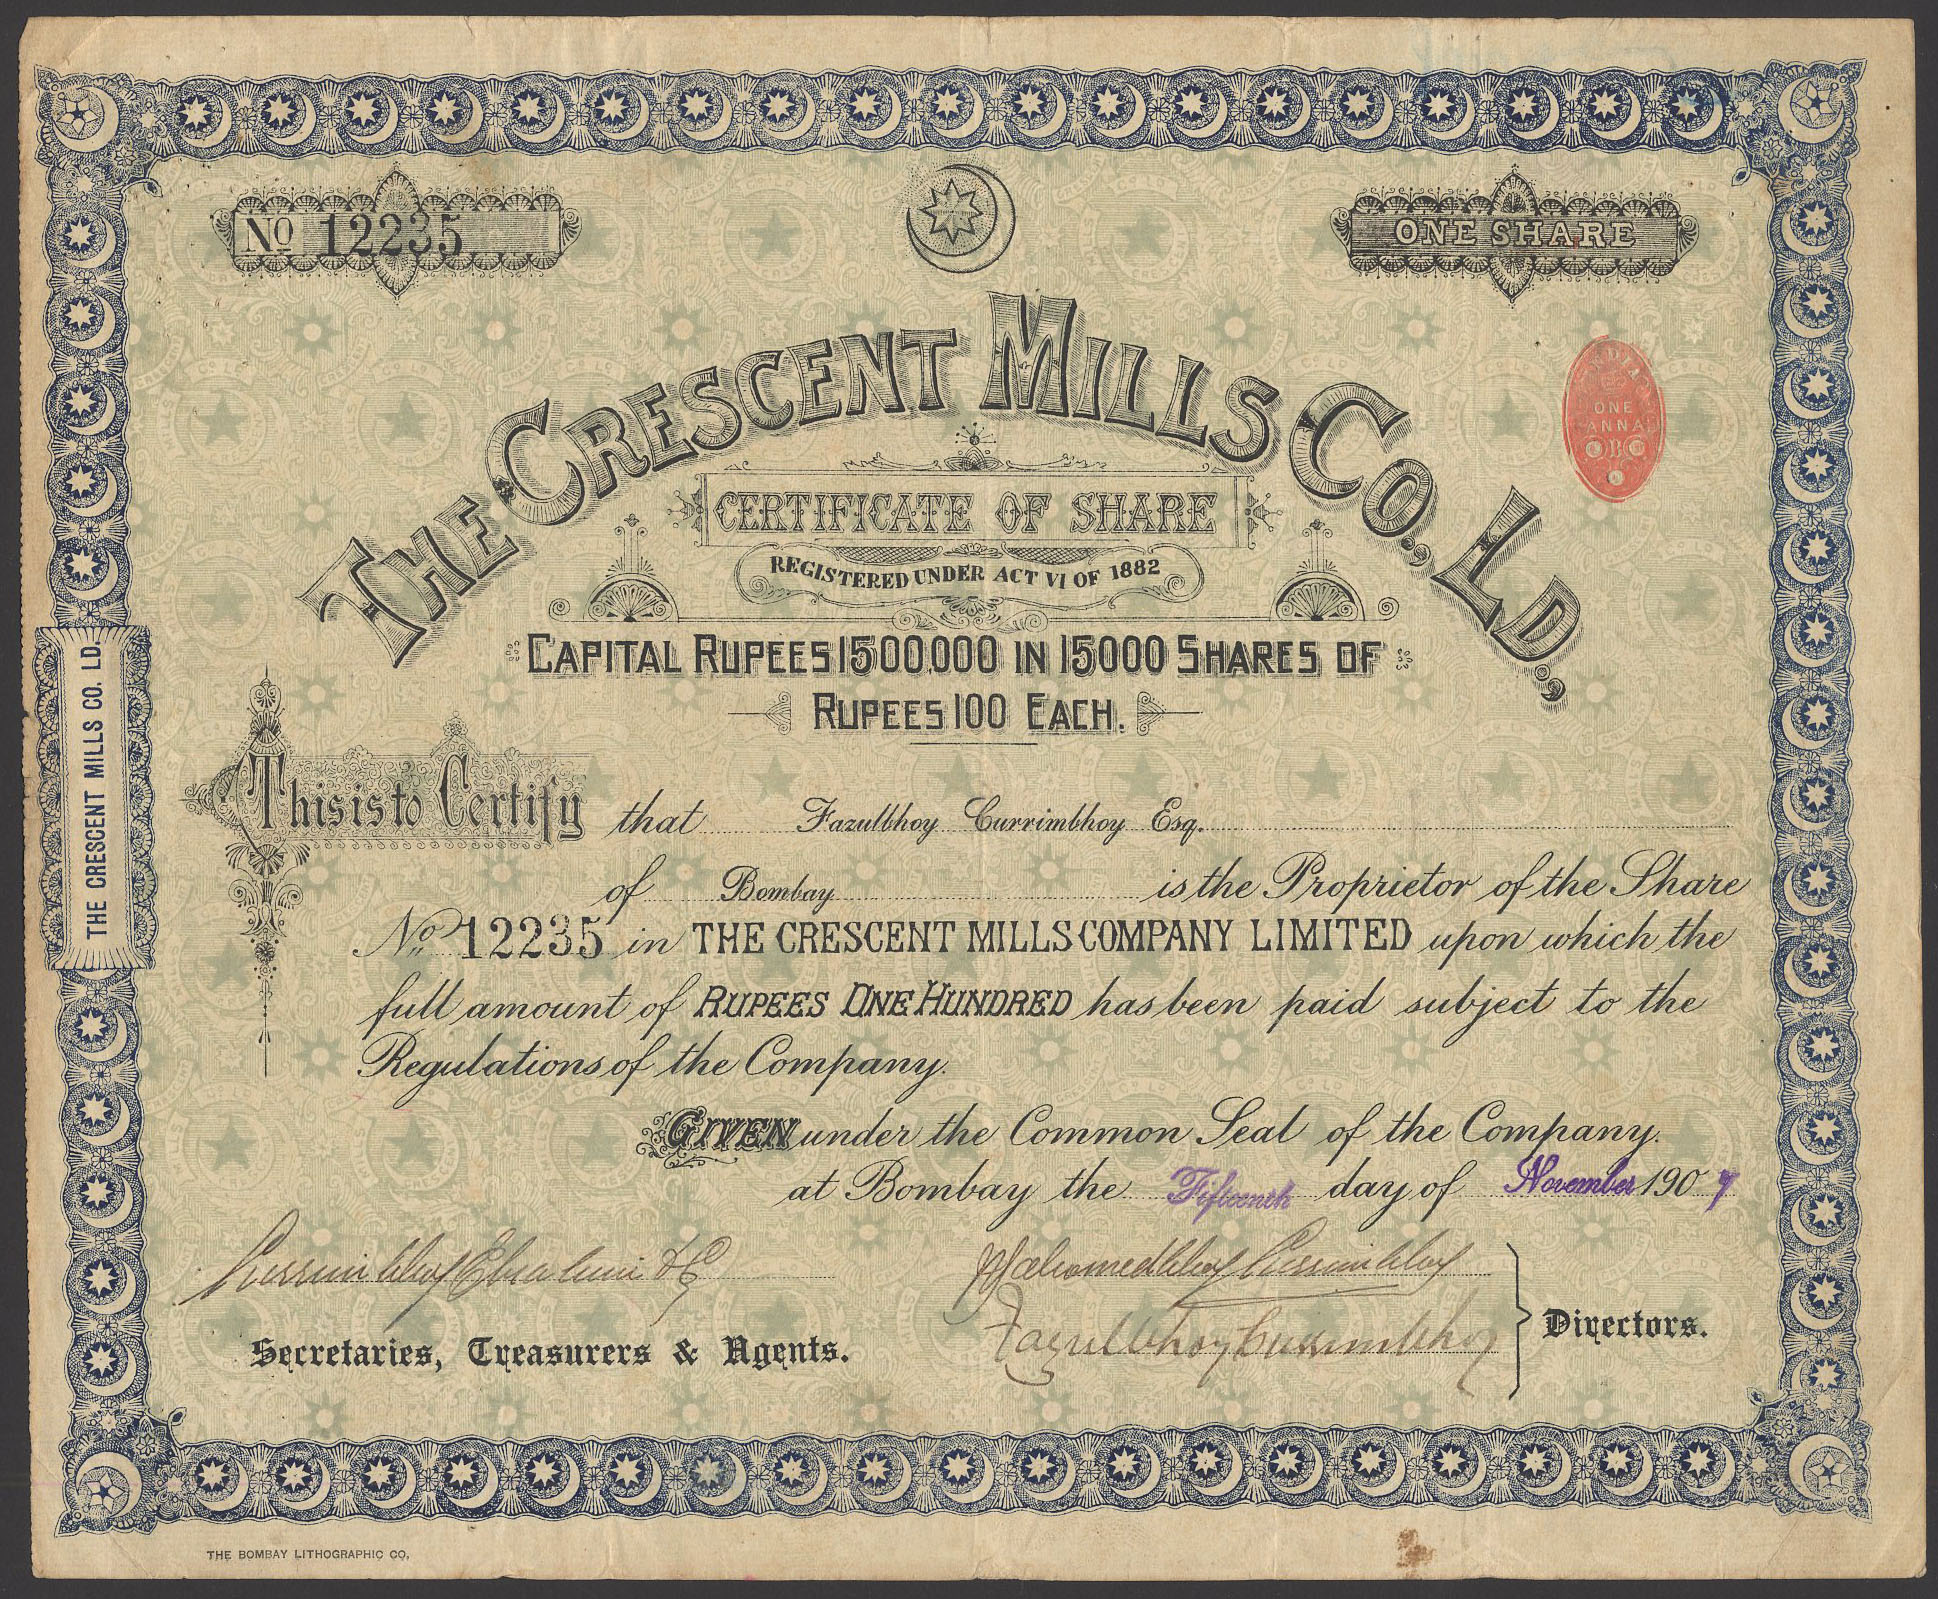 No 12235
ONE SHARE
THE CRESCENT MILLS CO., LD.,
INDIA
ONE
ANNA
B
CERTIFICATE OF SHARE
REGISTERED UNDER ACT VI OF 1882
CAPITAL RUPEES 1500,000 IN 15000 SHARES OF
RUPEES 100 EACH.
THE CRESCENT MILLS CO. LD.
This is to Certify that Fazulbhoy Currimbhoy Esq.
of Bombay is the Proprietor of the Share
No. 12235 in THE CRESCENT MILLS COMPANY LIMITED upon which the
full amount of RUPEES ONE HUNDRED has been paid subject to the
Regulations of the Company.
GIVEN under the Common Seal of the Company.
at Bombay the Fifteenth day of November 1907
Currimbhoy Ebrahim & Co
Mahomedbhoy Currimbhoy
Fazulbhoy Currimbhoy
Directors.
Secretaries, Treasurers & Agents.
THE BOMBAY LITHOGRAPHIC CO,